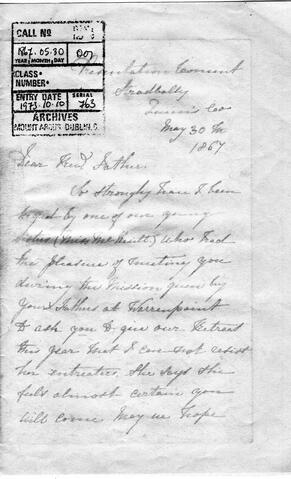 CALL NO
1867.05.30 001
YEAR, MONTH, DAY
CLASS
NUMBER
ENTRY DATE SERIAL
1973.10.10 763
ARCHIVES
MOUNT ARGUS, DUBLIN, 6.
Presentation Convent
Stradbally
Queen's Co
May 30th
1867
Dear Revd Father,
So strongly have I been
urged by one of our young
ladies (Miss McNulty) who had
the pleasure of meeting you
during the Mission given by
your Fathers at Warrenpoint
to ask you to give our Retreat
this year that I can not resist
her entreaties. She says she
feels almost certain you
will come May we hope